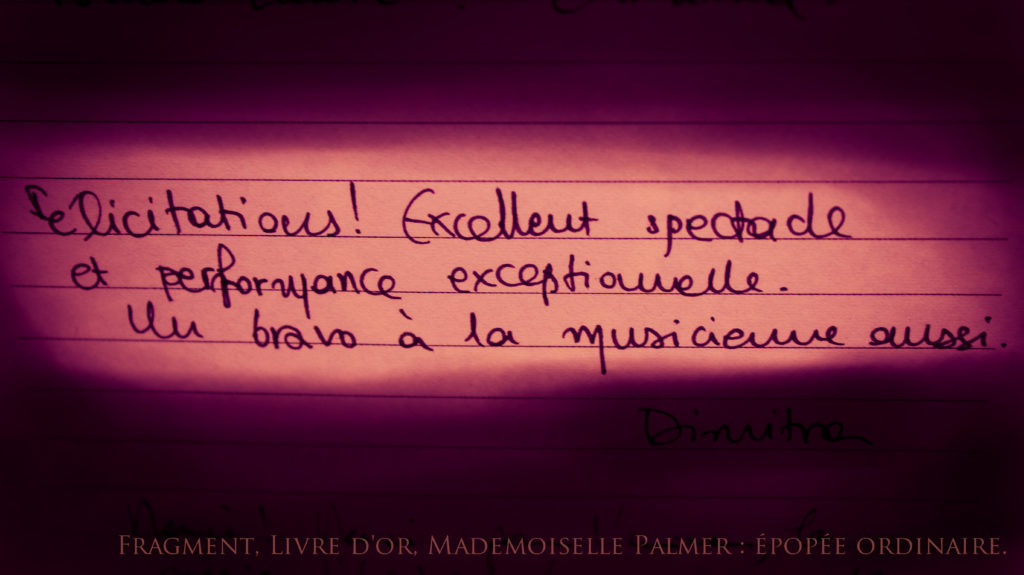 Felicitations! Excellent spectacle
et performance exceptionnelle.
Un bravo à la musicienne aussi.
Dimitra
FRAGMENT, LIVRE D'OR, MADEMOISELLE PALMER : ÉPOPÉE ORDINAIRE.